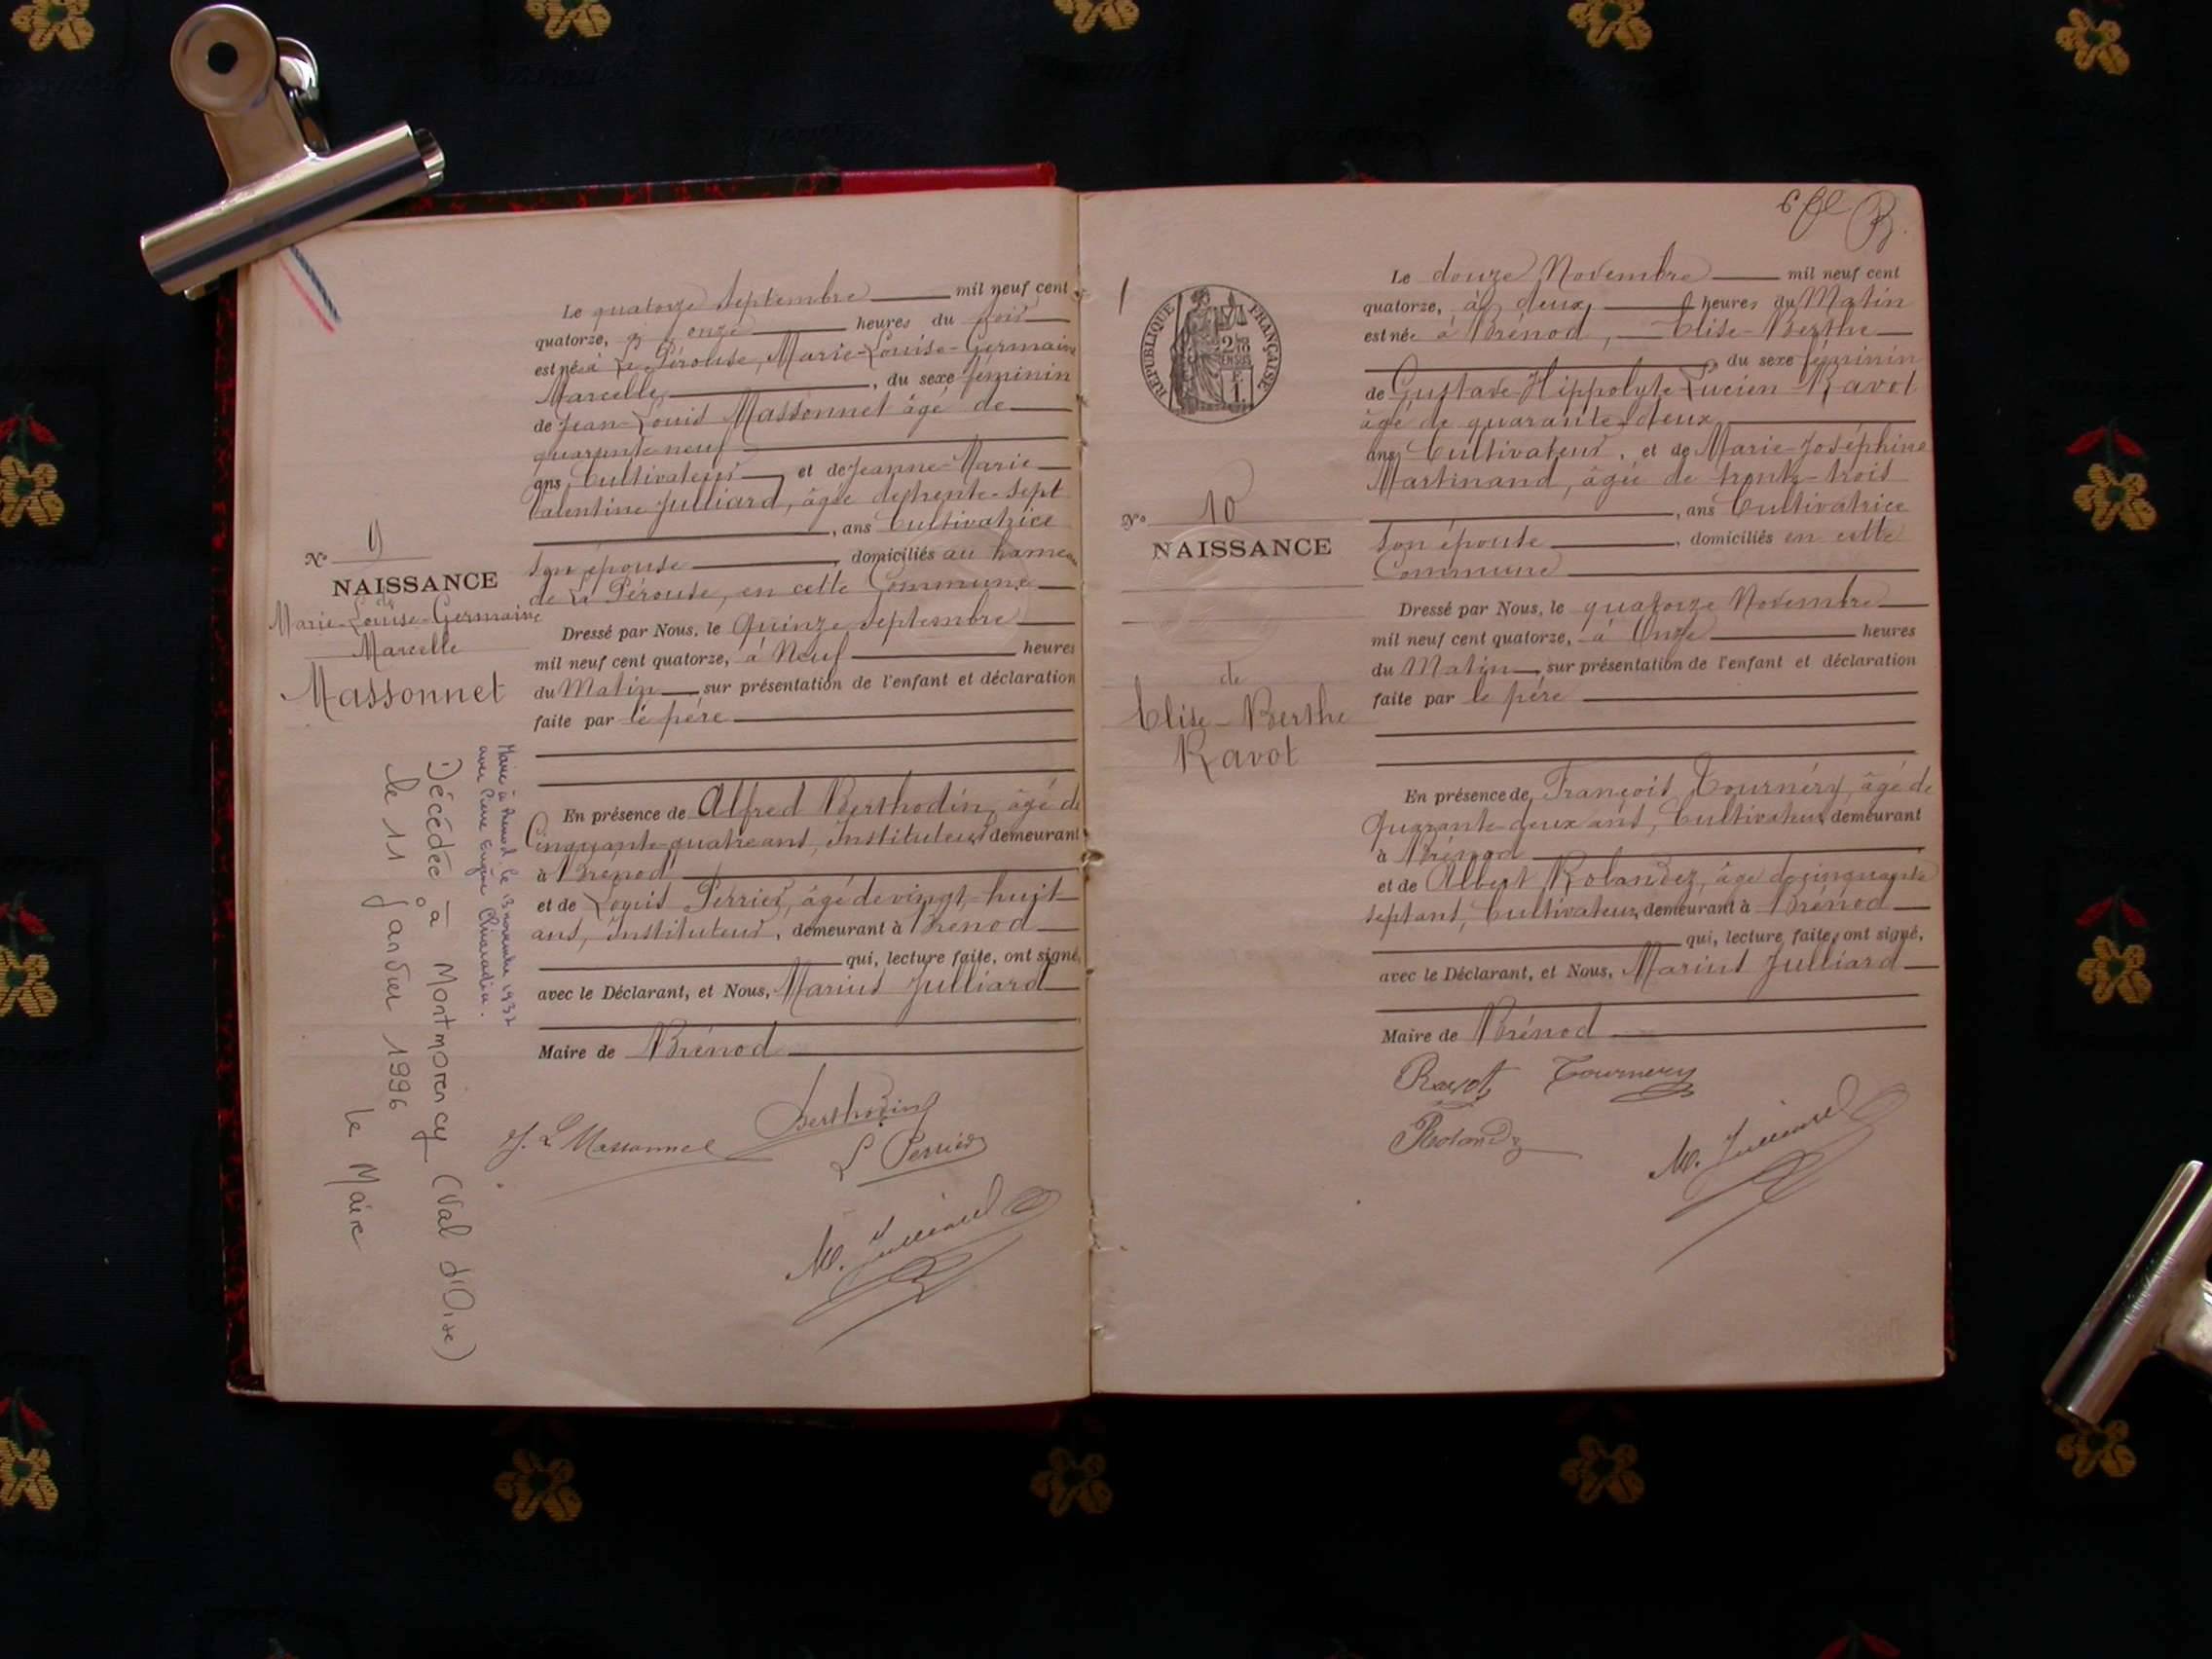 Le quatorze Septembre mil neuf cent
quatorze, à onze heures du soir
est née à La Pérouse, Marie-Louise-Germaine
Marcelle, du sexe féminin
de Jean-Louis Massonnet âgé de
quarante-neuf
ans Cultivateur et de Jeanne-Marie
Valentine Julliard, âgée de trente-sept
, ans Cultivatrice
son épouse, domiciliés au hameau
de La Pérouse, en cette Commune
Dressé par Nous, le Quinze Septembre
mil neuf cent quatorze, à Neuf heures
du Matin, sur présentation de l'enfant et déclaration
faite par le père
En présence de Alfred Berthodin, âgé de
Cinquante-quatre ans, Instituteur demeurant
à Brénod
et de Louis Perrier, âgé de vingt-huit
ans, instituteur, demeurant à Brénod
qui, lecture faite, ont signé,
avec le Déclarant, et Nous, Marius Julliard
Maire de Brénod
J. L Massonnet
Berthodin
L Perrier
M. Julliard
No 9
NAISSANCE
de
Marie-Louise-Germaine
Marcelle
Massonnet
Mariée à Brénod le 3 novembre 1937
avec Pierre Eugène
Décédée à Montmorency (Val d'Oise)
le 11 janvier 1996
Le Maire
B.
RÉPUBLIQUE FRANÇAISE
Le douze Novembre mil neuf cent
quatorze, à deux heures du Matin
est née à Brénod, Elise-Berthe
, du sexe féminin
de Gustave Hippolyte Lucien Ravot
âgé de quarante-deux
ans Cultivateur, et de Marie-Joséphine
Martinand, âgée de trente-trois
, ans Cultivatrice
son épouse, domiciliés en cette
Commune
Dressé par Nous, le quatorze Novembre
mil neuf cent quatorze, à Onze heures
du Matin, sur présentation de l'enfant et déclaration
faite par le père
En présence de François Tournéry, âgé de
Quarante-deux ans, Cultivateur demeurant
à Brénod
et de Albert Rolandez, âgé de cinquante
sept ans, Cultivateur, demeurant à Brénod
qui, lecture faite, ont signé,
avec le Déclarant, et Nous, Marius Julliard
Maire de Brénod
Ravot Tournery
Rolandez
M. Julliard
No 10
NAISSANCE
de
Elise-Berthe
Ravot